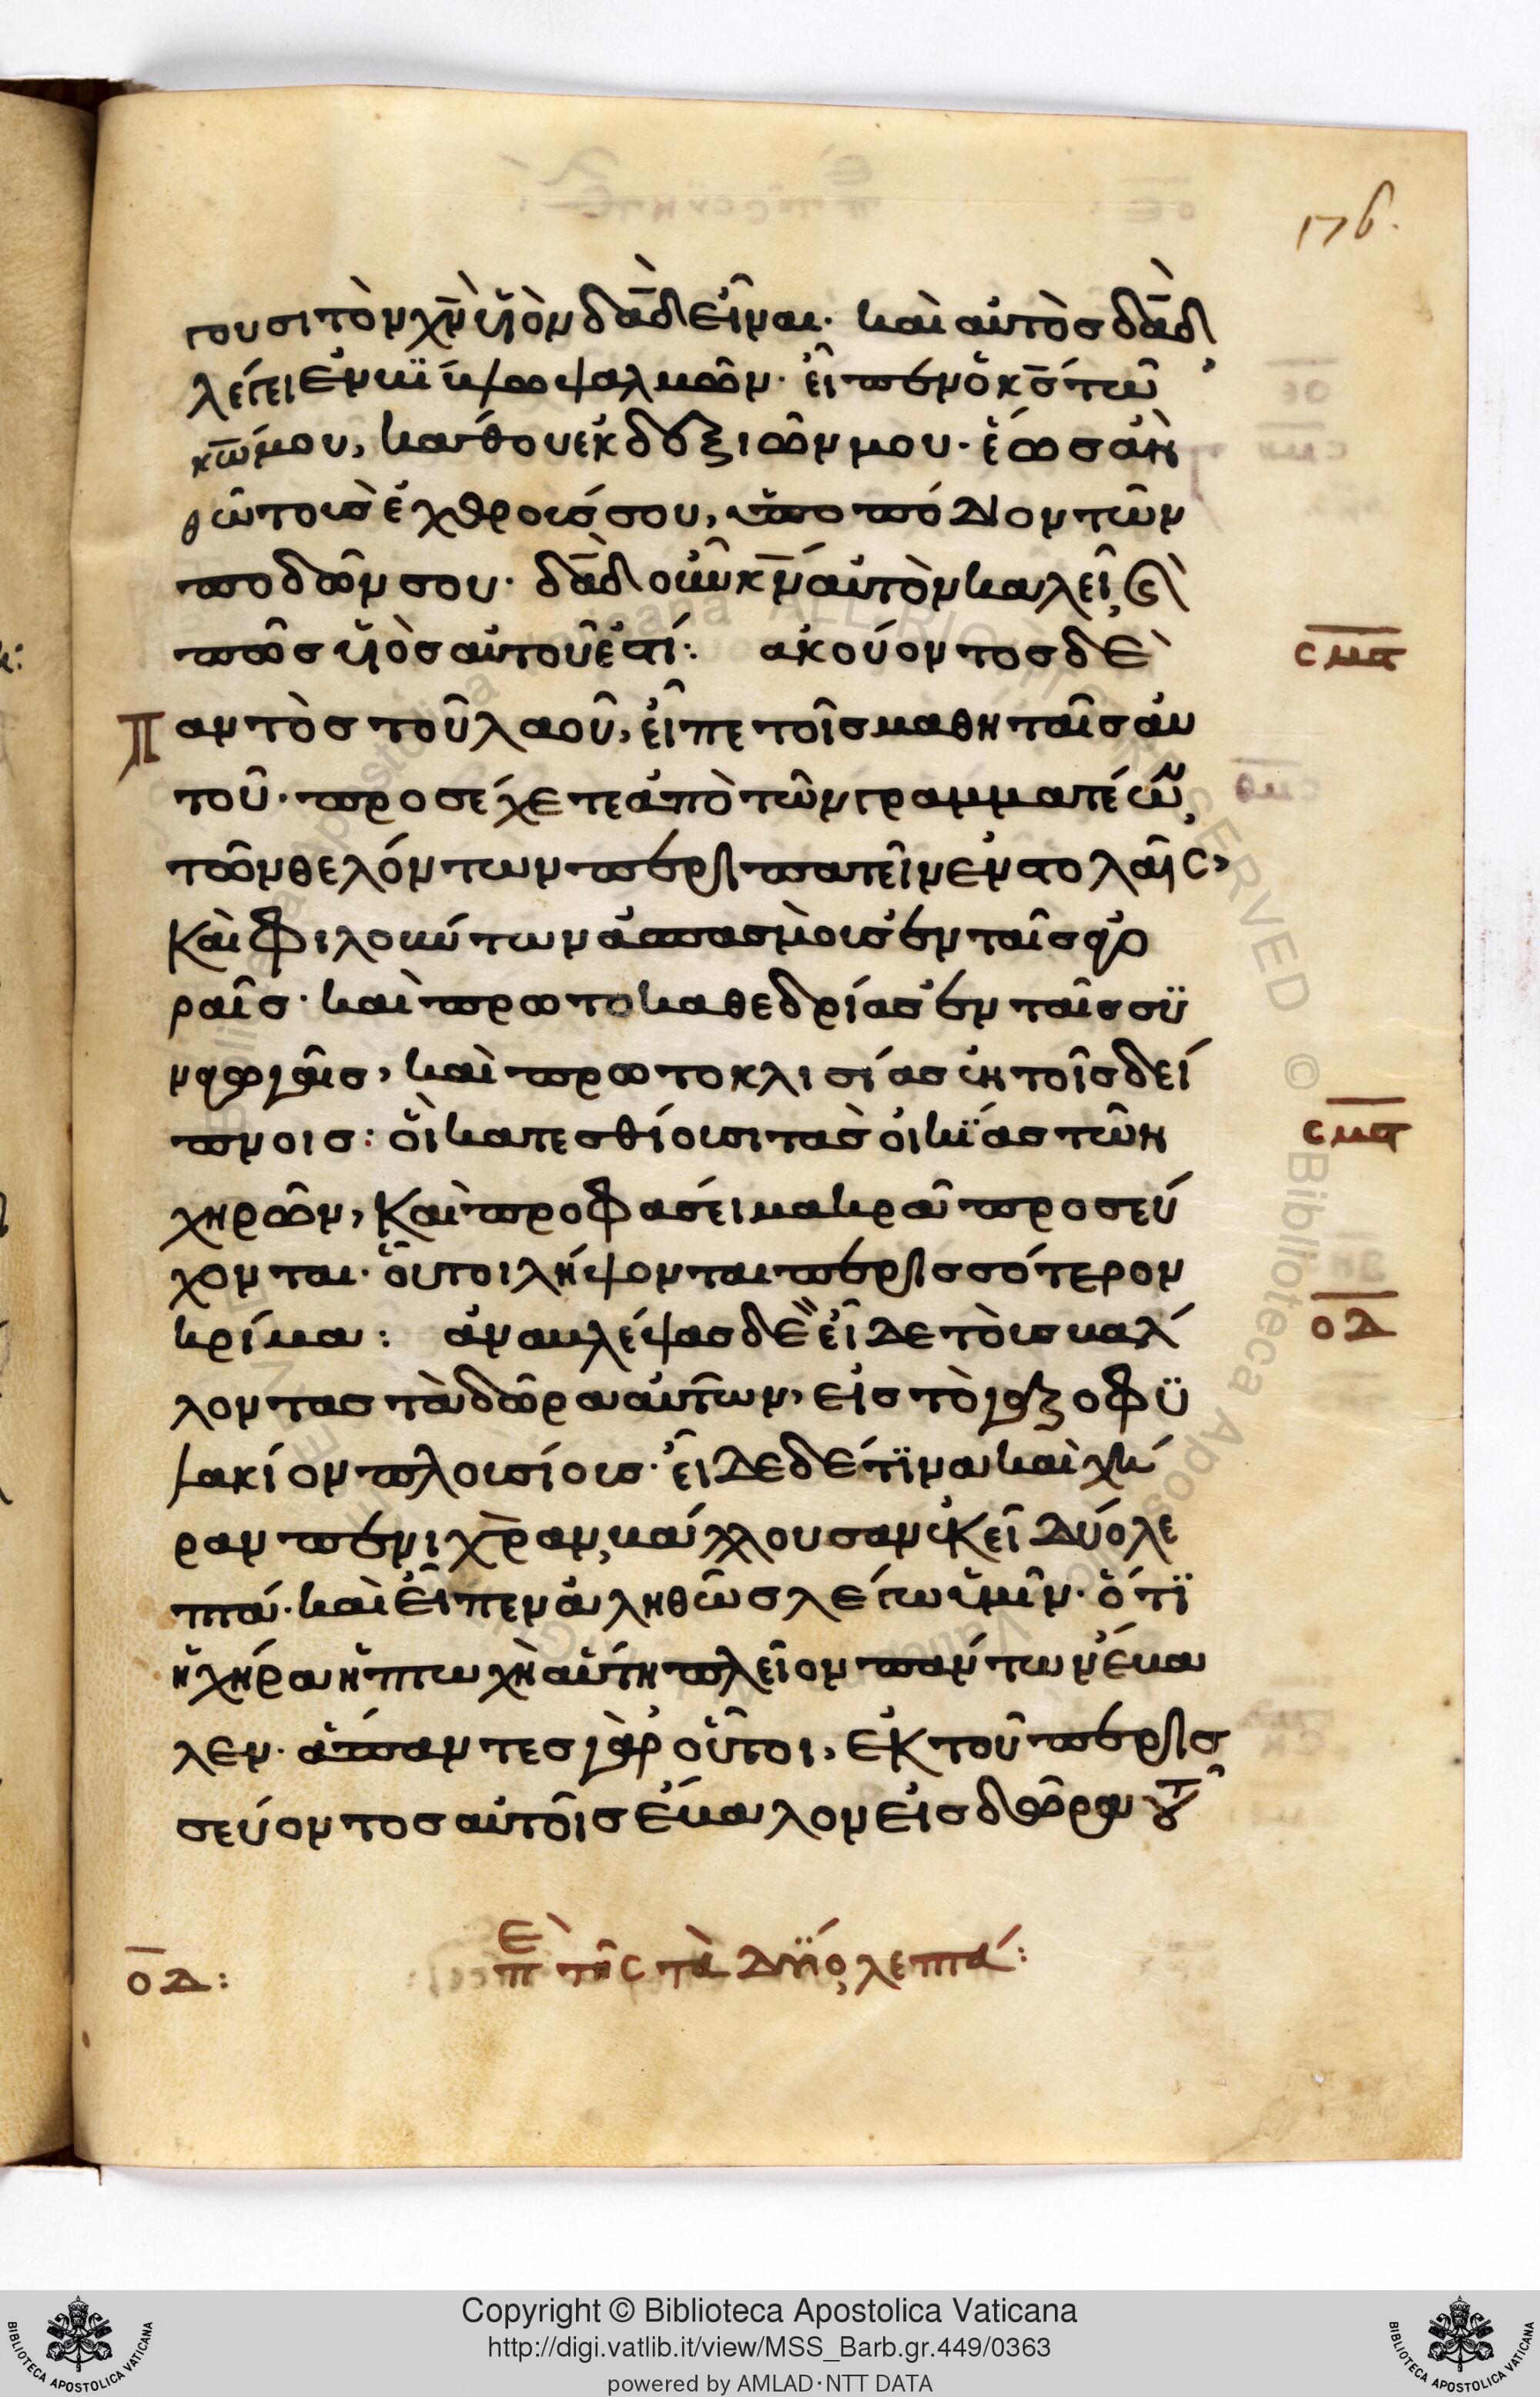 176.
γουσι τὸν χ̅ν̅ υἱὸν δα̅δ εἶναι· καὶ αὐτὸς δα̅δ
λέγει ἐν βίβλω ψαλμῶν· εἶπεν ὁ κ̅ς̅ τῶ
κ̅ω̅ μου, κάθου ἐκ δεξιῶν μου· ἕως ἂν
θῶ τοὺς ἐχθρούς σου, ὑποπόδιον τῶν
ποδῶν σου· δα̅δ οὖν κ̅ν̅ αὐτὸν καλεῖ, καὶ
πῶς υἱὸς αὐτοῦ ἐστί: ἀκούοντος δὲ
Παντὸς τοῦ λαοῦ, εἶπε τοῖς μαθηταῖς αὐ
τοῦ· προσέχετε ἀπὸ τῶν γραμματέων,
τῶν θελόντων περιπατεῖν ἐν στολαῖς,
καὶ φιλούντων ἀσπασμοὺς ἐν ταῖς ἀγο
ραῖς· καὶ πρωτοκαθεδρίας ἐν ταῖς συ
ναγωγαῖς, καὶ πρωτοκλισίας ἐν τοῖς δεί
πνοις: οἳ κατεσθίουσι τὰς οἰκίας τῶν
χηρῶν, καὶ προφάσει μακρᾶ προσεύ
χονται· οὗτοι λήψονται περισσότερον
κρίμα: ἀναβλέψας δὲ εἶδε τοὺς βάλ
λοντας τὰ δῶρα αὐτῶν, εἰς τὸ γαζοφυ
λάκιον πλουσίους· εἶδε δέ τινα καὶ χή
ραν πενιχρὰν, βάλλουσαν ἐκεῖ δύο λε
πτά· καὶ εἶπεν ἀληθῶς λέγω ὑμῖν· ὅτι
ἡ χήρα ἡ πτωχὴ αὕτη πλεῖον πάντων ἔβα
λεν· ἅπαντες γὰρ οὗτοι, ἐκ τοῦ περισ
σεύοντος αὐτοῖς ἔβαλον εἰς δῶρα τοῦ
σμα
σμϛ
οδ
οδ: πε τῆς τὰ δύο λεπτά:
Copyright © Biblioteca Apostolica Vaticana
http://digi.vatlib.it/view/MSS_Barb.gr.449/0363
powered by AMLAD·NTT DATA
BIBLIOTECA APOSTOLICA VATICANA
BIBLIOTECA APOSTOLICA VATICANA